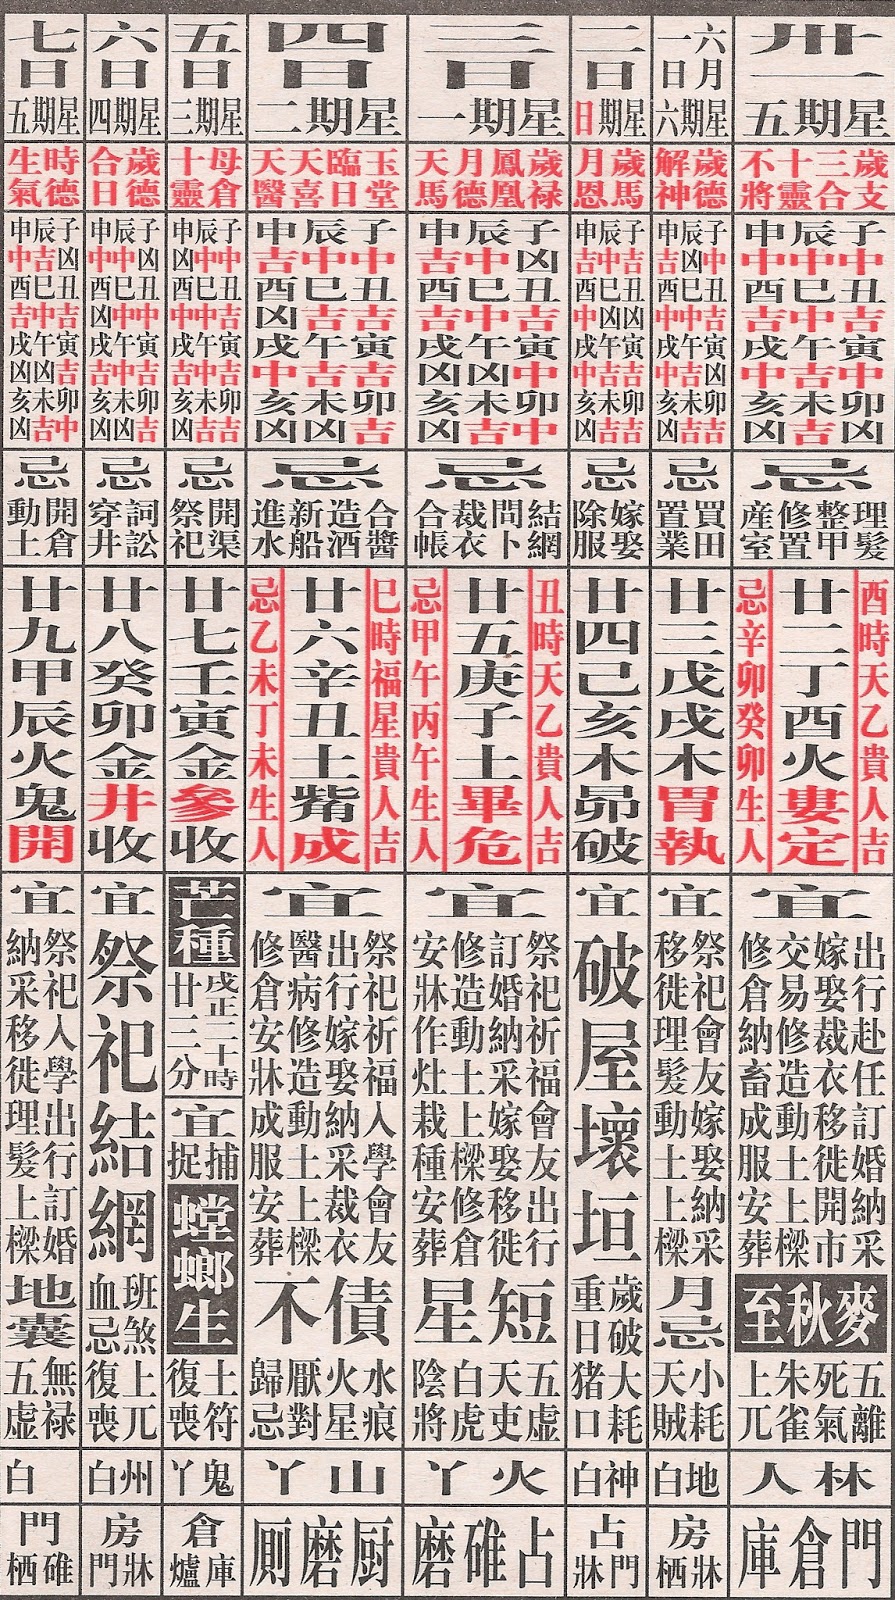 卅一
星期五
歲支
三合
十靈
不將
子中丑吉寅中卯凶
辰中巳中午吉未吉
申中酉吉戌中亥凶
忌
理髮
整甲
修置
産室
酉時天乙貴人吉
廿二丁酉火婁定
忌辛卯癸卯生人
宜
出行赴任訂婚納采
嫁娶裁衣移徙開市
交易修造動土上樑
修倉納畜成服安葬
麥秋至
五離
死氣
朱雀
上兀
林人
門倉庫
六月一日
星期六
歲德
解神
子中丑中寅凶卯吉
辰凶巳中午吉未吉
申吉酉吉戌中亥凶
忌
買田
置業
廿三戊戌木胃執
宜
祭祀會友嫁娶納采
移徙理髮動土上樑
月忌
小耗
天賊
地白
房牀栖
二日
星期日
歲馬
月恩
子吉丑凶寅吉卯吉
辰中巳凶午中未吉
申吉酉中戌中亥凶
忌
嫁娶
除服
廿四己亥木昴破
宜
破屋壞垣
歲破大耗
重日猪口
神白
占門牀
三日
星期一
歲禄
鳳凰
月德
天馬
子凶丑吉寅中卯中
辰中巳中午凶未吉
申吉酉吉戌凶亥凶
忌
結網
問卜
裁衣
合帳
丑時天乙貴人吉
廿五庚子土畢危
忌甲午丙午生人
宜
祭祀祈福會友出行
訂婚納采嫁娶移徙
修造動土上樑修倉
安牀作灶栽種安葬
短星
五虛
天吏
白虎
陰將
火丫
占碓磨
四日
星期二
玉堂
臨日
天喜
天醫
子中丑吉寅吉卯吉
辰中巳吉午吉未凶
申吉酉凶戌中亥凶
忌
合醬
造酒
新船
進水
巳時福星貴人吉
廿六辛丑土觜成
忌乙未丁未生人
宜
祭祀祈福入學會友
出行嫁娶納采裁衣
醫病修造動土上樑
修倉安牀成服安葬
債不
水痕
火星
厭對
歸忌
山丫
厨磨厠
五日
星期三
母倉
十靈
子中丑吉寅吉卯吉
辰中巳中午中未吉
申凶酉中戌吉亥凶
忌
開渠
祭祀
廿七壬寅金參收
芒種
戌正二十時
廿三分
宜
捕捉
螳螂生
土符
復喪
鬼丫
倉庫爐
六日
星期四
歲德
合日
子凶丑中寅吉卯吉
辰中巳中午中未凶
申中酉凶戌吉亥凶
忌
詞訟
穿井
廿八癸卯金井收
宜
祭祀結網
班煞上兀
血忌復喪
州白
房牀門
七日
星期五
時德
生氣
子凶丑吉寅吉卯中
辰吉巳中午凶未吉
申中酉吉戌凶亥凶
忌
開倉
動土
廿九甲辰火鬼開
宜
祭祀入學出行訂婚
納采移徙理髮上樑
地囊
無禄
五虛
白
門碓栖